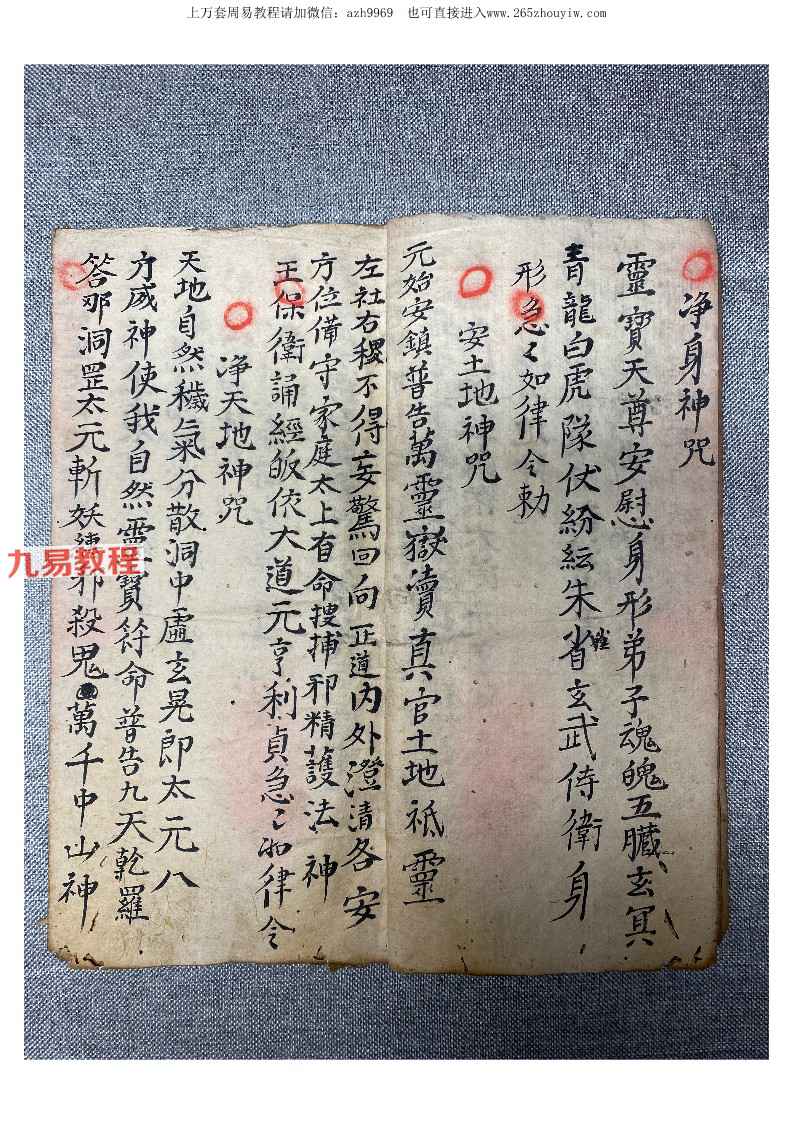 上万套周易教程请加微信：azh9969　也可直接进入www.265zhouyiw.com
净身神咒
靈寶天尊安慰身形弟子魂魄五臟玄冥
青龍白虎隊仗紛紜朱雀玄武侍衛身
形急〻如律令勅
安土地神咒
元始安鎮普告萬靈嶽瀆真官土地祇靈
左社右稷不得妄驚回向正道內外澄清各安
方位備守家庭太上有命搜捕邪精護法神
王保衛誦經皈依大道元亨利貞急〻如律令
净天地神咒
天地自然穢氣分散洞中虛玄晃郎太元八
方威神使我自然靈寶符命普告九天乾羅
答那洞罡太元斬妖邪殺鬼萬千中山神
九易教程